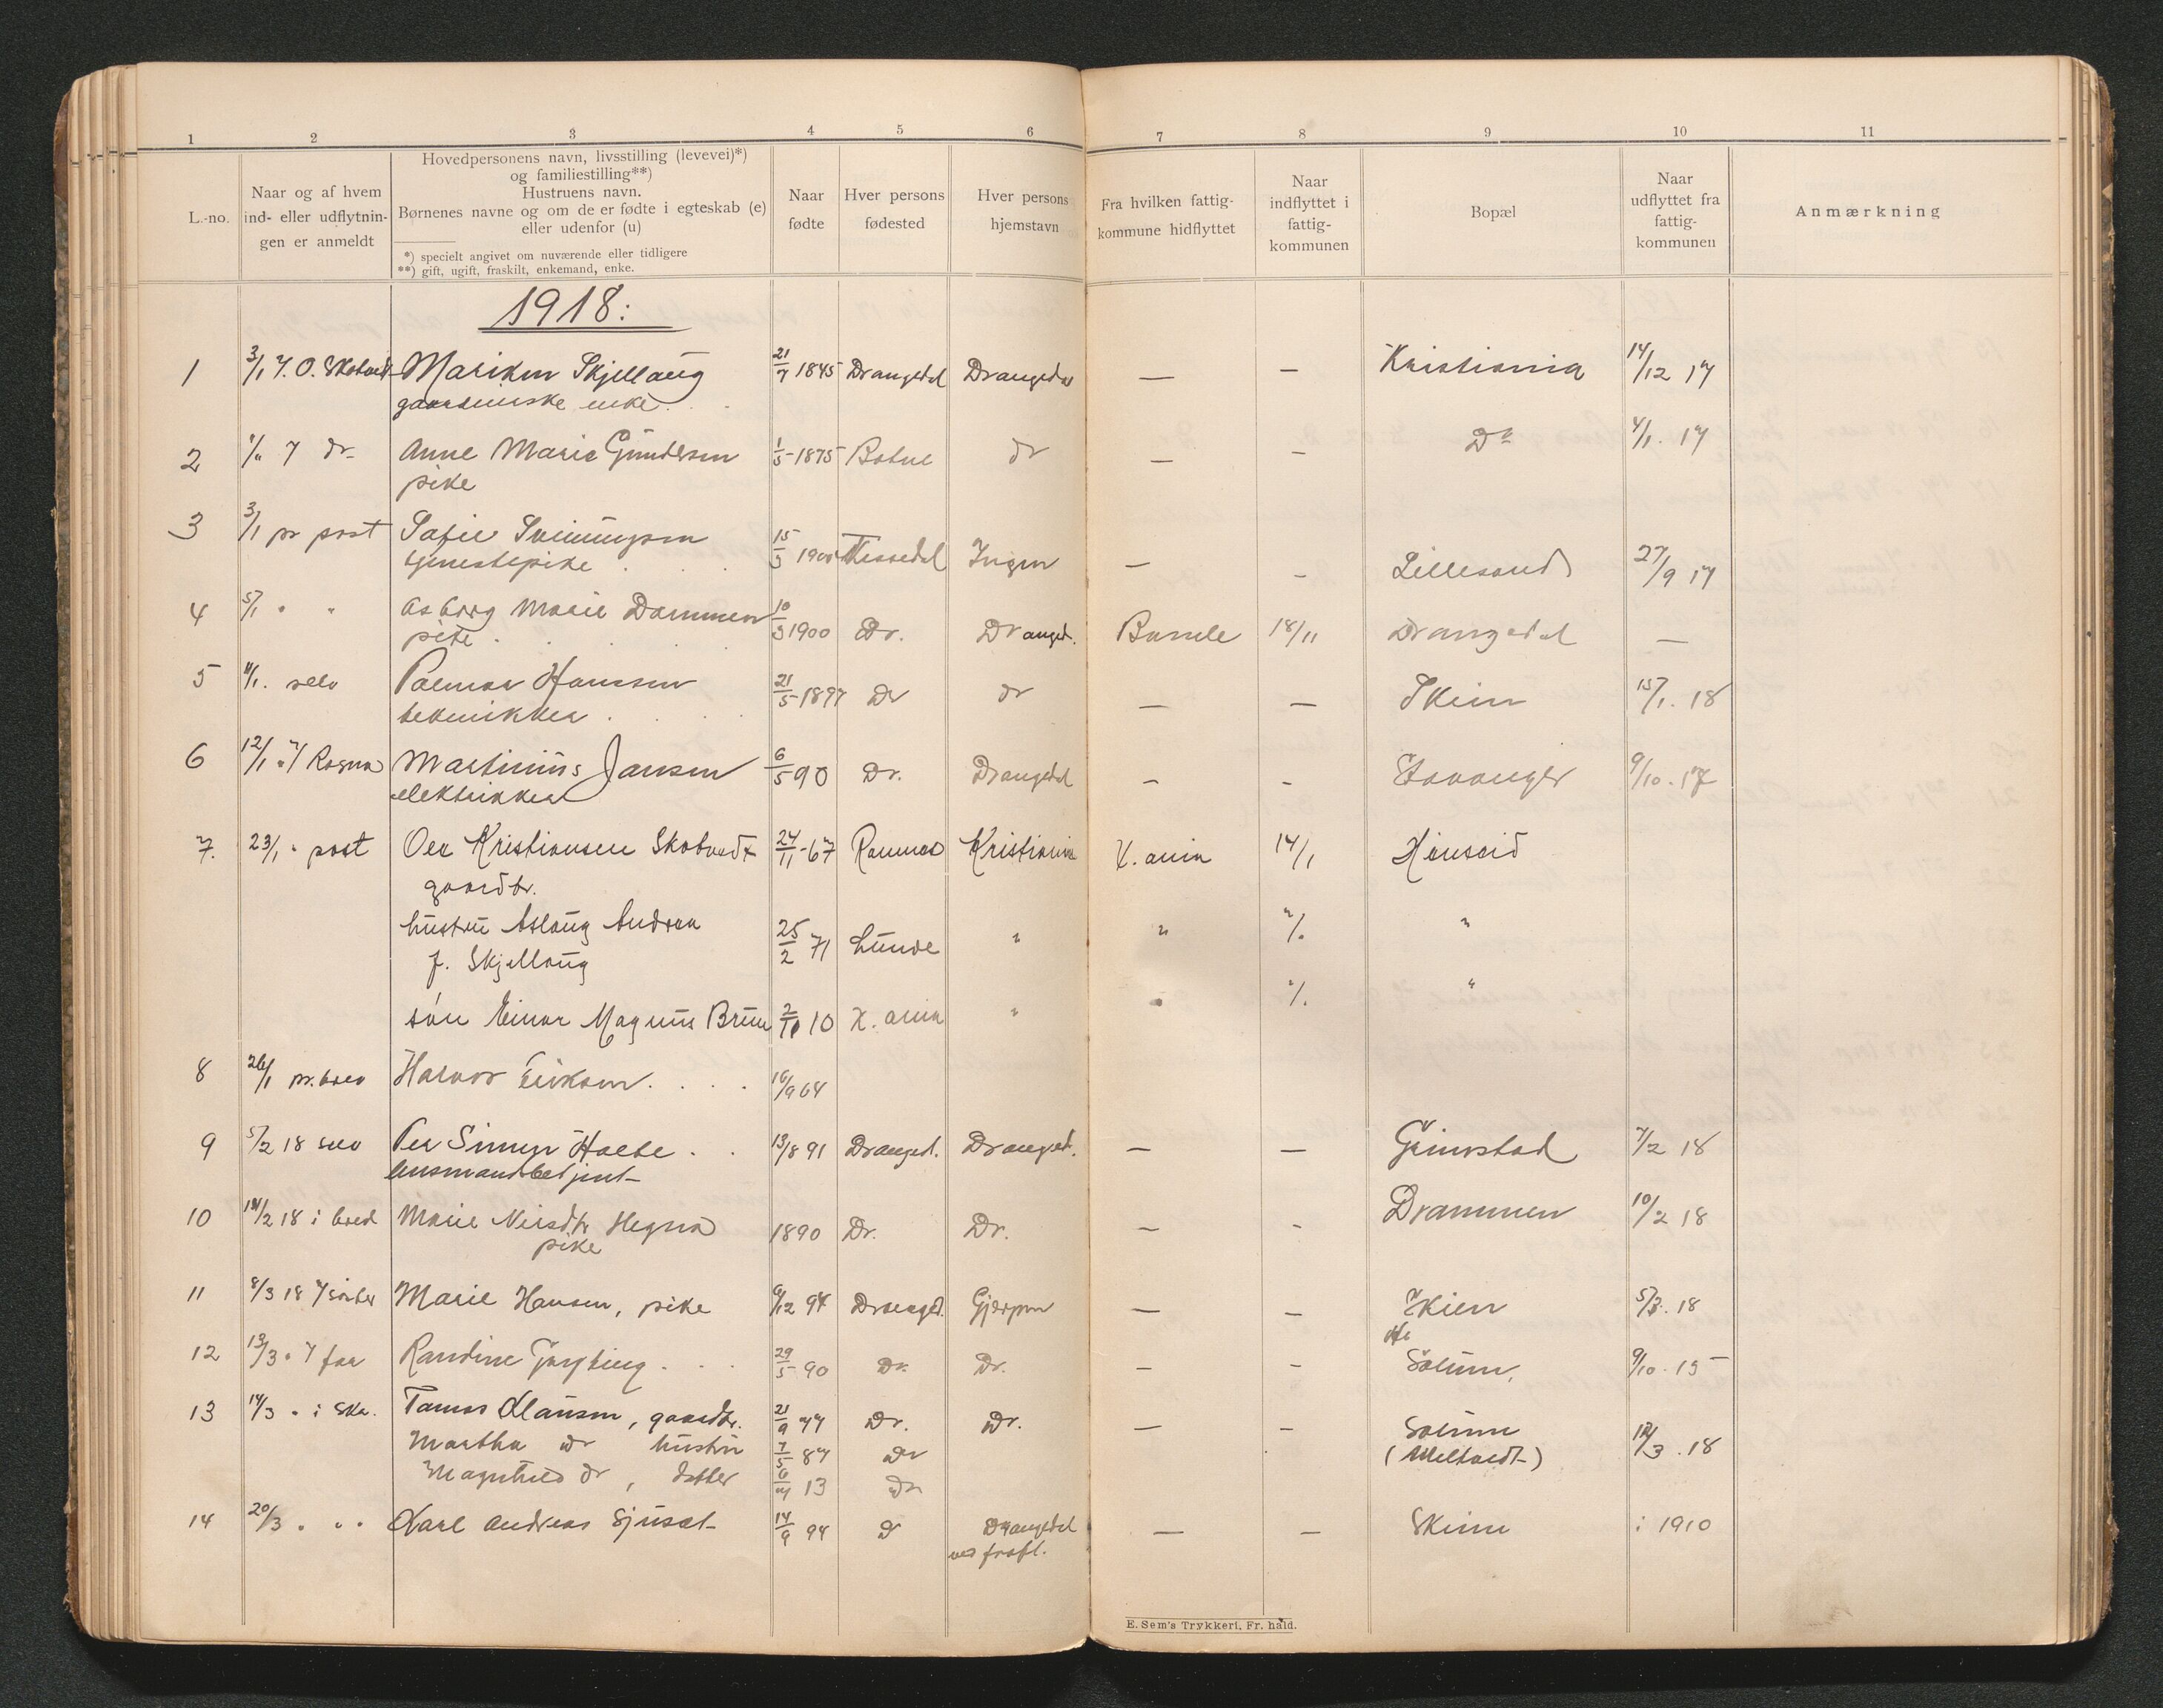 1 2 3 4 5 6 7 8 9 10 11
L.-no.
Naar og af hvem
ind- eller udflytnin-
gen er anmeldt
Hovedpersonens navn, livsstilling (levevei)*)
og familiestilling**)
Hustruens navn.
Børnenes navne og om de er fødte i egteskab (e)
eller udenfor (u)
*) specielt angivet om nuværende eller tidligere
**) gift, ugift, fraskilt, enkemand, enke.
Naar
fødte
Hver persons
fødested
Hver persons
hjemstavn
Fra hvilken fattig-
kommune hidflyttet
Naar
indflyttet i
fattig-
kommunen
Bopæl
Naar
udflyttet fra
fattig-
kommunen
Anmærkning
1918:
1 3/1 O. Skobvedt Mariken Skjellaug 21/7 1845 Drangedal Drangedal — — Kristiania 14/12 17
enke
2 Anne Marie Gundersen 1/5 1875 dr — — Do 4/1 17
pike
3 3/1 pr post Sofie 15/5 Ingen — — Lillesand 27/9 17
tjenestepike
4 5/1 " " Asborg Marie Dammen 10/3 1900 Dr. Dranged. Bamle 18/11 Drangedal —
pike
5 11/1 selv Palmar Hanssen 21/5 1897 Dr dr — — Skien 15/1 18
tekniker
6 12/1 " Ragna Martinius Jansen 6/5 90 Dr. Drangedal — — Stavanger 9/10 17
elektrikker
7. 23/1 " post Ole Kristiansen Skobvedt 24/11 67 Kristiania K.ania 14/1
gaardbr.
hustru Aslaug Andrea 25/2 71 Lunde " " "/. "
f. Skjellaug
søn Einar Magnus 10 K.ania " " "/. "
8 26/1 pr. brev Halvor Eriksen 16/9 64
9 5/2 18 selv Per Simen Holte 13/8 91 Dranged. Dranged. — — Grimstad 7/2 18
lensmandsbetjent
10 14/2 18 i bred Marie Nilsdtr Hegna 1890 Dr. Dr. — — Drammen 10/2 18
pike
11 8/3 18 Marie Hansen, pike 6/12 94 Dranged. Gjerpen — — Skien 5/3 18
12 13/3 " far Randine 29/5 90 Dr. Dr. — — Solum, 9/10 15
13 14/3 " i Sk. Tomas Klausen, gaardbr. 21/9 77 Dr. Dr. — — Solum 12/3 18
Martha dr hustru 7/5 87 dr (Meltvedt)
Magnhild dr, datter 13 dr
14 20/3 " " " Karl Andreas 14/9 94 dr Drangedal — — Skien i 1910
ved frafl.
E. Sem's Trykkeri, Fr. hald.